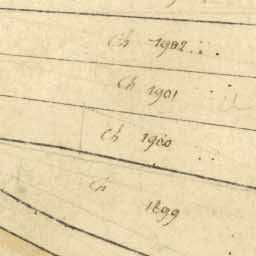 Ch 1902
Ch 1901
Ch 1900
Ch 1899